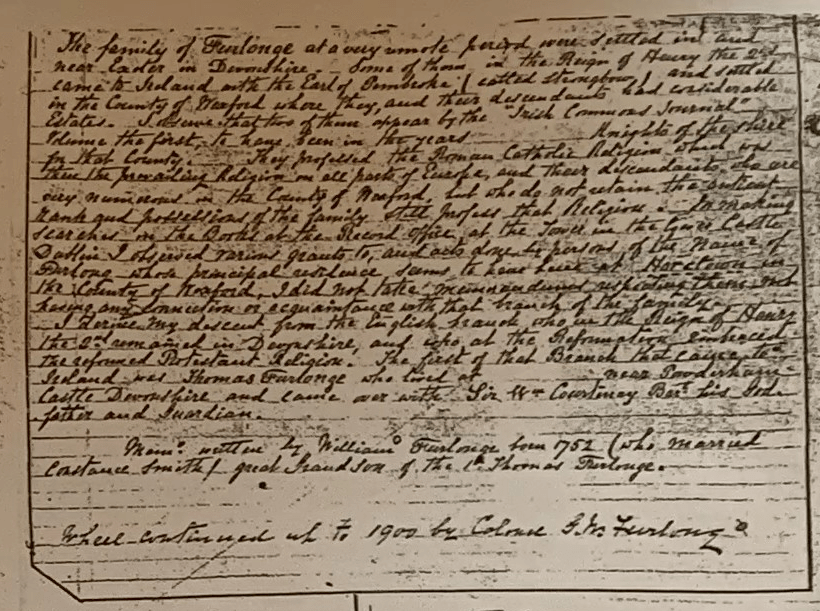 The family of Furlonge at a very remote period were settled in and
near Exeter in Devonshire. Some of them in the Reign of Henry the 2nd
came to Ireland with the Earl of Pembroke (called Strongbow) and settled
in the County of Wexford where they, and their descendants had considerable
Estates. I observe that two of them appear by the "Irish Commons Journal"
Volume the first, to have been in the years Knights of the Shire
for that County. They professed the Roman Catholic Religion which was
then the prevailing Religion in all parts of Europe, and their descendants who are
very numerous in the County of Wexford, but who do not retain the antient
rank and possessions of the family still profess that Religion. In making
searches in the Books at the Record Office, at the Tower in the Castle
Dublin I observed various grants to, and acts done to persons of the Name of
Furlong whose principal residence seems to have been at Horetown in
the County of Wexford. I did not take memorandums respecting them, not
having any connection or acquaintance with that branch of the family.
I derive my descent from the English branch who in the Reign of Henry
the 2nd remained in Devonshire, and who at the Reformation embraced
the reformed Protestant Religion. The first of that Branch that came to
Ireland was Thomas Furlonge who lived at near Powderham
Castle Devonshire and came over with Sir Wm Courtenay Bart his God
father and Guardian.
Memo. written by William Furlonge born 1752 (who married
Constance Smith) great Grandson of the 1st Thomas Furlonge.
continued up to 1900 by Colonel Furlong